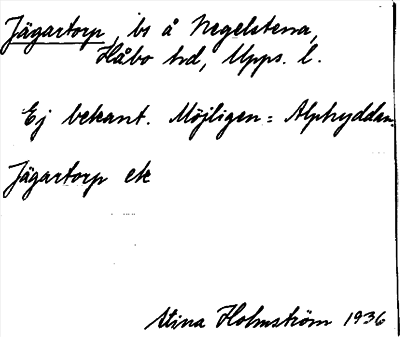 Jägartorp, bs å Negelstena,
Håbo hd, Upps. l.
Ej bekant. Möjligen = Alphyddan.
Jägartorp ek
Stina Holmström 1936